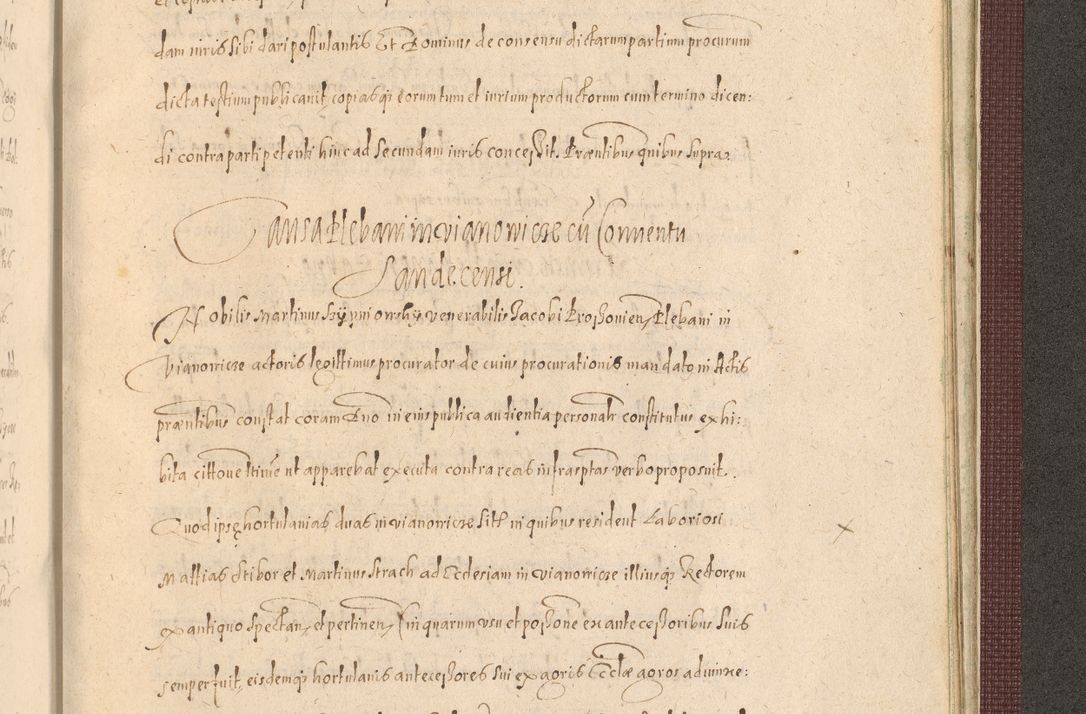 dam iuris sibi dari postulantis Et Dominus de consensu dictarum partium procurum
dicta testium publicavit copiasq3 eorum tum et iurium productorum cum termino dicen:
di contra parti petenti hinc ad Secundam iuris concessit. Præntibus quibus supra
Causa Plebani in Wianowicze cū Conventu
Sandecensi.
Nobilis Martinus venerabilis Jacobi Proszovien, Plebani in
Wianowicze actoris legittimus procurator de cuius procurationis mandato in Actis
præntibus constat coram Dno in eius publica audientia personalr constitutus exhi:
bita citt͞oue lt͞ime ut apparebat executa contra reas infrascptas verbo proposuit.
Quod ipse hortulanias duas in Wianowicze sitt in quibus resident Laboriosi
Mattias Stibor et Martinus Strach ad Ecclesiam in Wianowicze illiusq3 Rectorem
ex antiquo spectan, et pertinen, in quarum usu et possone ex antecessoribus suis
semper fuit, eisdemq3 hortulanis antecessores sui ex agris Ecclæ agros adiunxe: